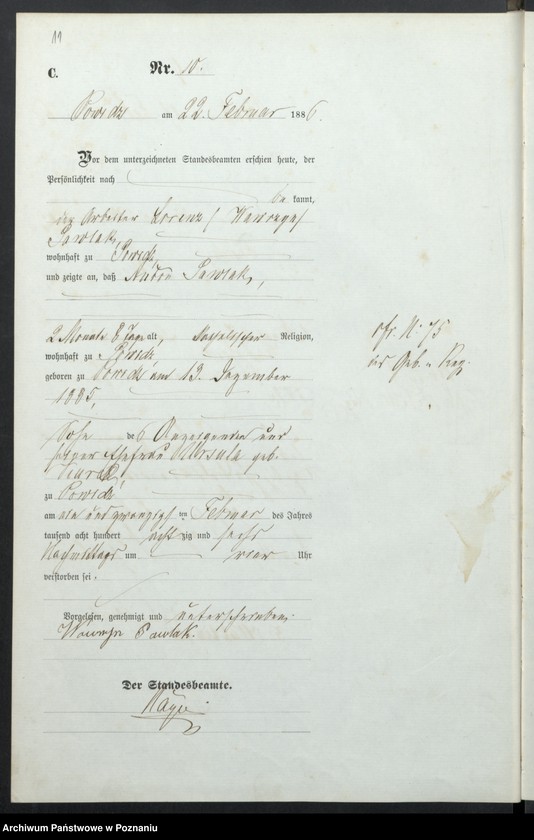 11
C.
Nr. 10.
Powidz am 22. Februar 1886.
Vor dem unterzeichneten Standesbeamten erschien heute, der
Persönlichkeit nach
be kannt,
der Arbeiter Lorenz / Wawrzyn /
Pawlak,
wohnhaft zu Powidz,
und zeigte an, daß Pawlak,
2 Monate 8 Tage alt, katholischer Religion,
wohnhaft zu Powidz,
geboren zu Powidz am 13. Dezember
1885,
Sohn des Anzeigenden und
seiner Ehefrau Ursula geb.
zu Powidz
am ein und zwanzigsten Februar des Jahres
tausend acht hundert achtzig und sechs
Nachmittags um vier Uhr
verstorben sei.
Vorgelesen, genehmigt und unterschrieben.
Wawrzyn Pawlak.
Der Standesbeamte.
cfr. N. 75
des Geb. Reg.
Archiwum Państwowe w Poznaniu